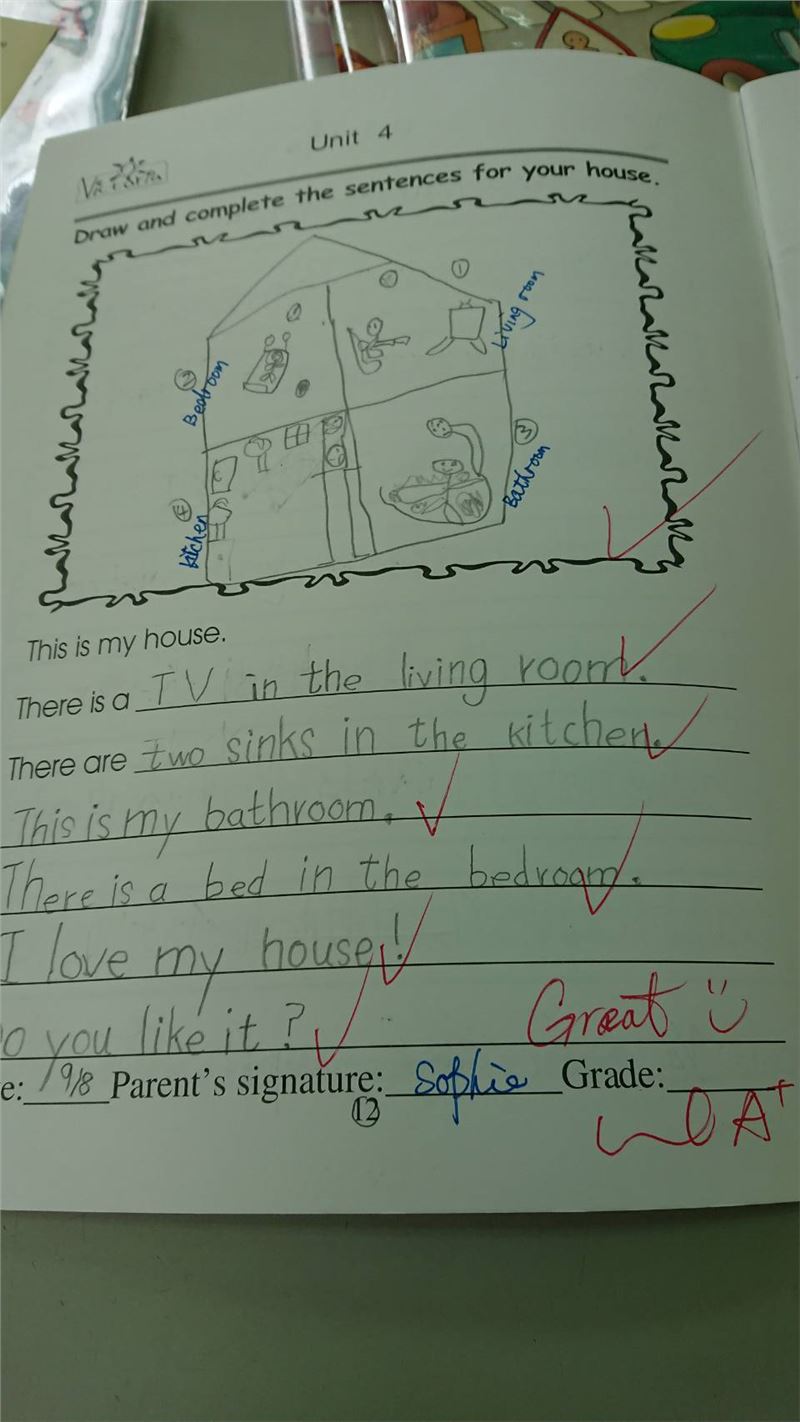 Unit 4
VICTORIA
Draw and complete the sentences for your house.
① Living room
② Bedroom
③ Bathroom
④ kitchen
This is my house.
There is a TV in the living room.
There are two sinks in the kitchen.
This is my bathroom.
There is a bed in the bedroom.
I love my house!
o you like it?
Great
e: 9/8 Parent's signature: Sophie Grade:
A+
12